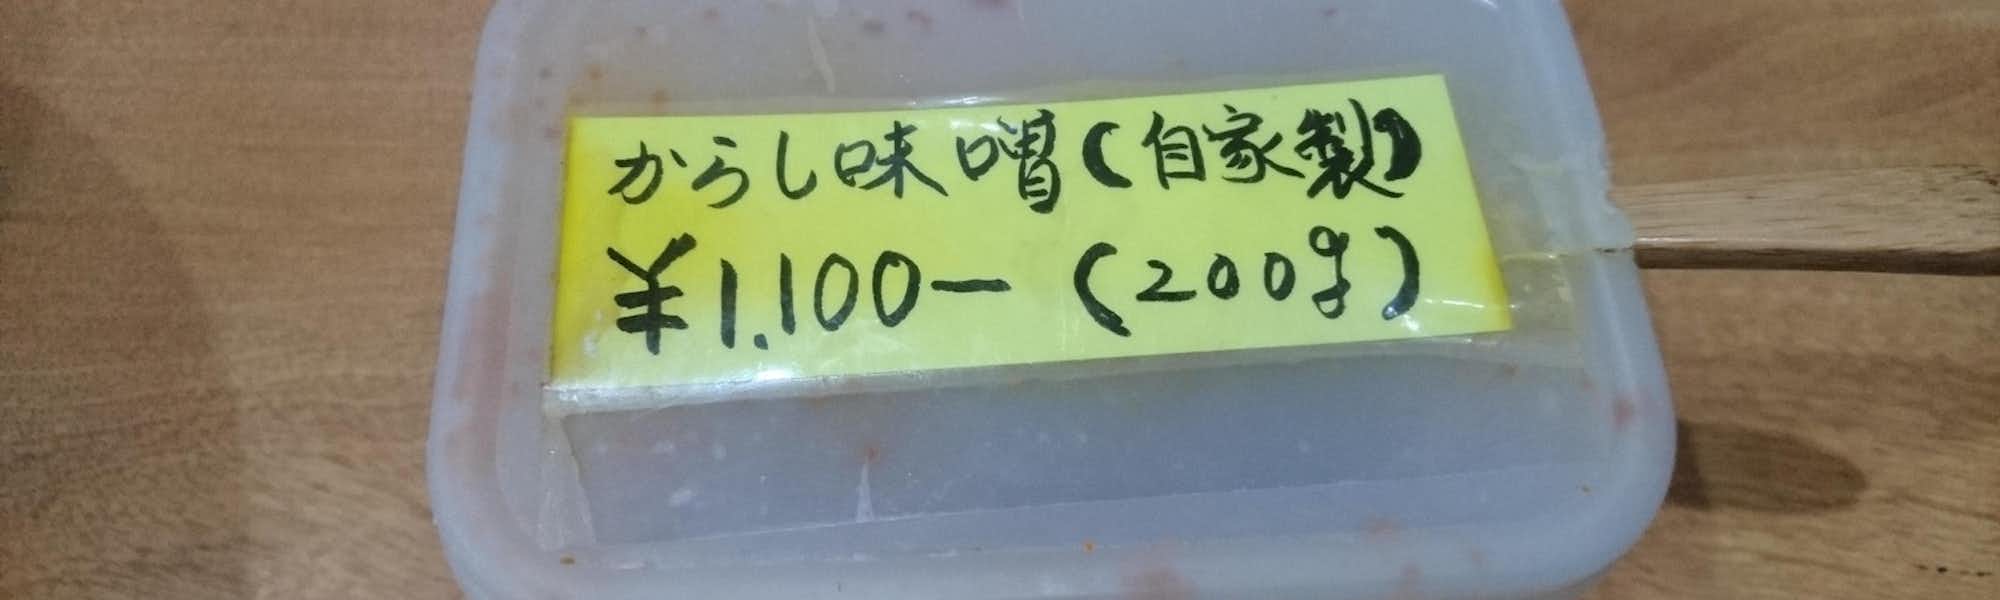 からし味噌(自家製)
¥1.100ー (200g)